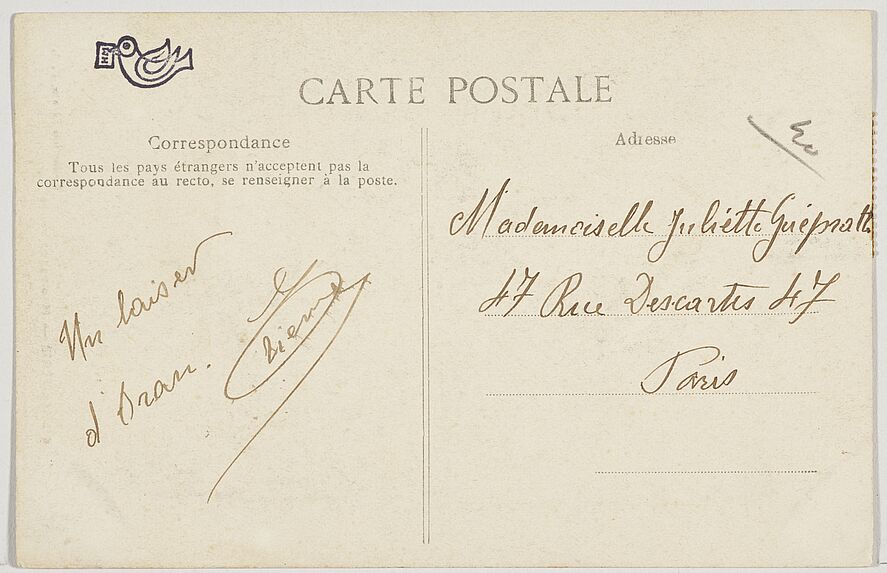 CARTE POSTALE
Correspondance
Tous les pays étrangers n'acceptent pas la
correspondance au recto, se renseigner à la poste.
Un baiser
d'Oran.
Adresse
Mademoiselle Juliette
47 Rue Descartes 47
Paris